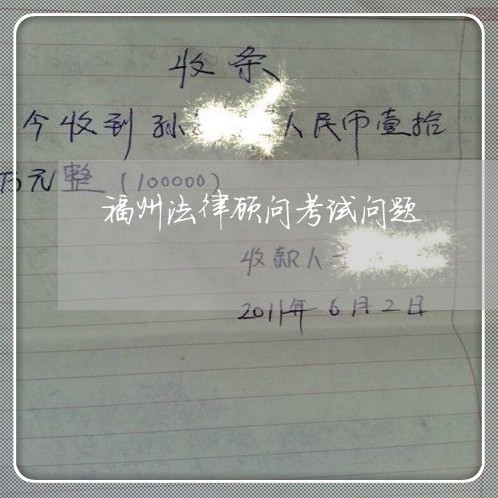 收条
今收到孙 人民币壹拾
万元整（100000）
福州法律顾问考试问题
收款人
2011年6月2日